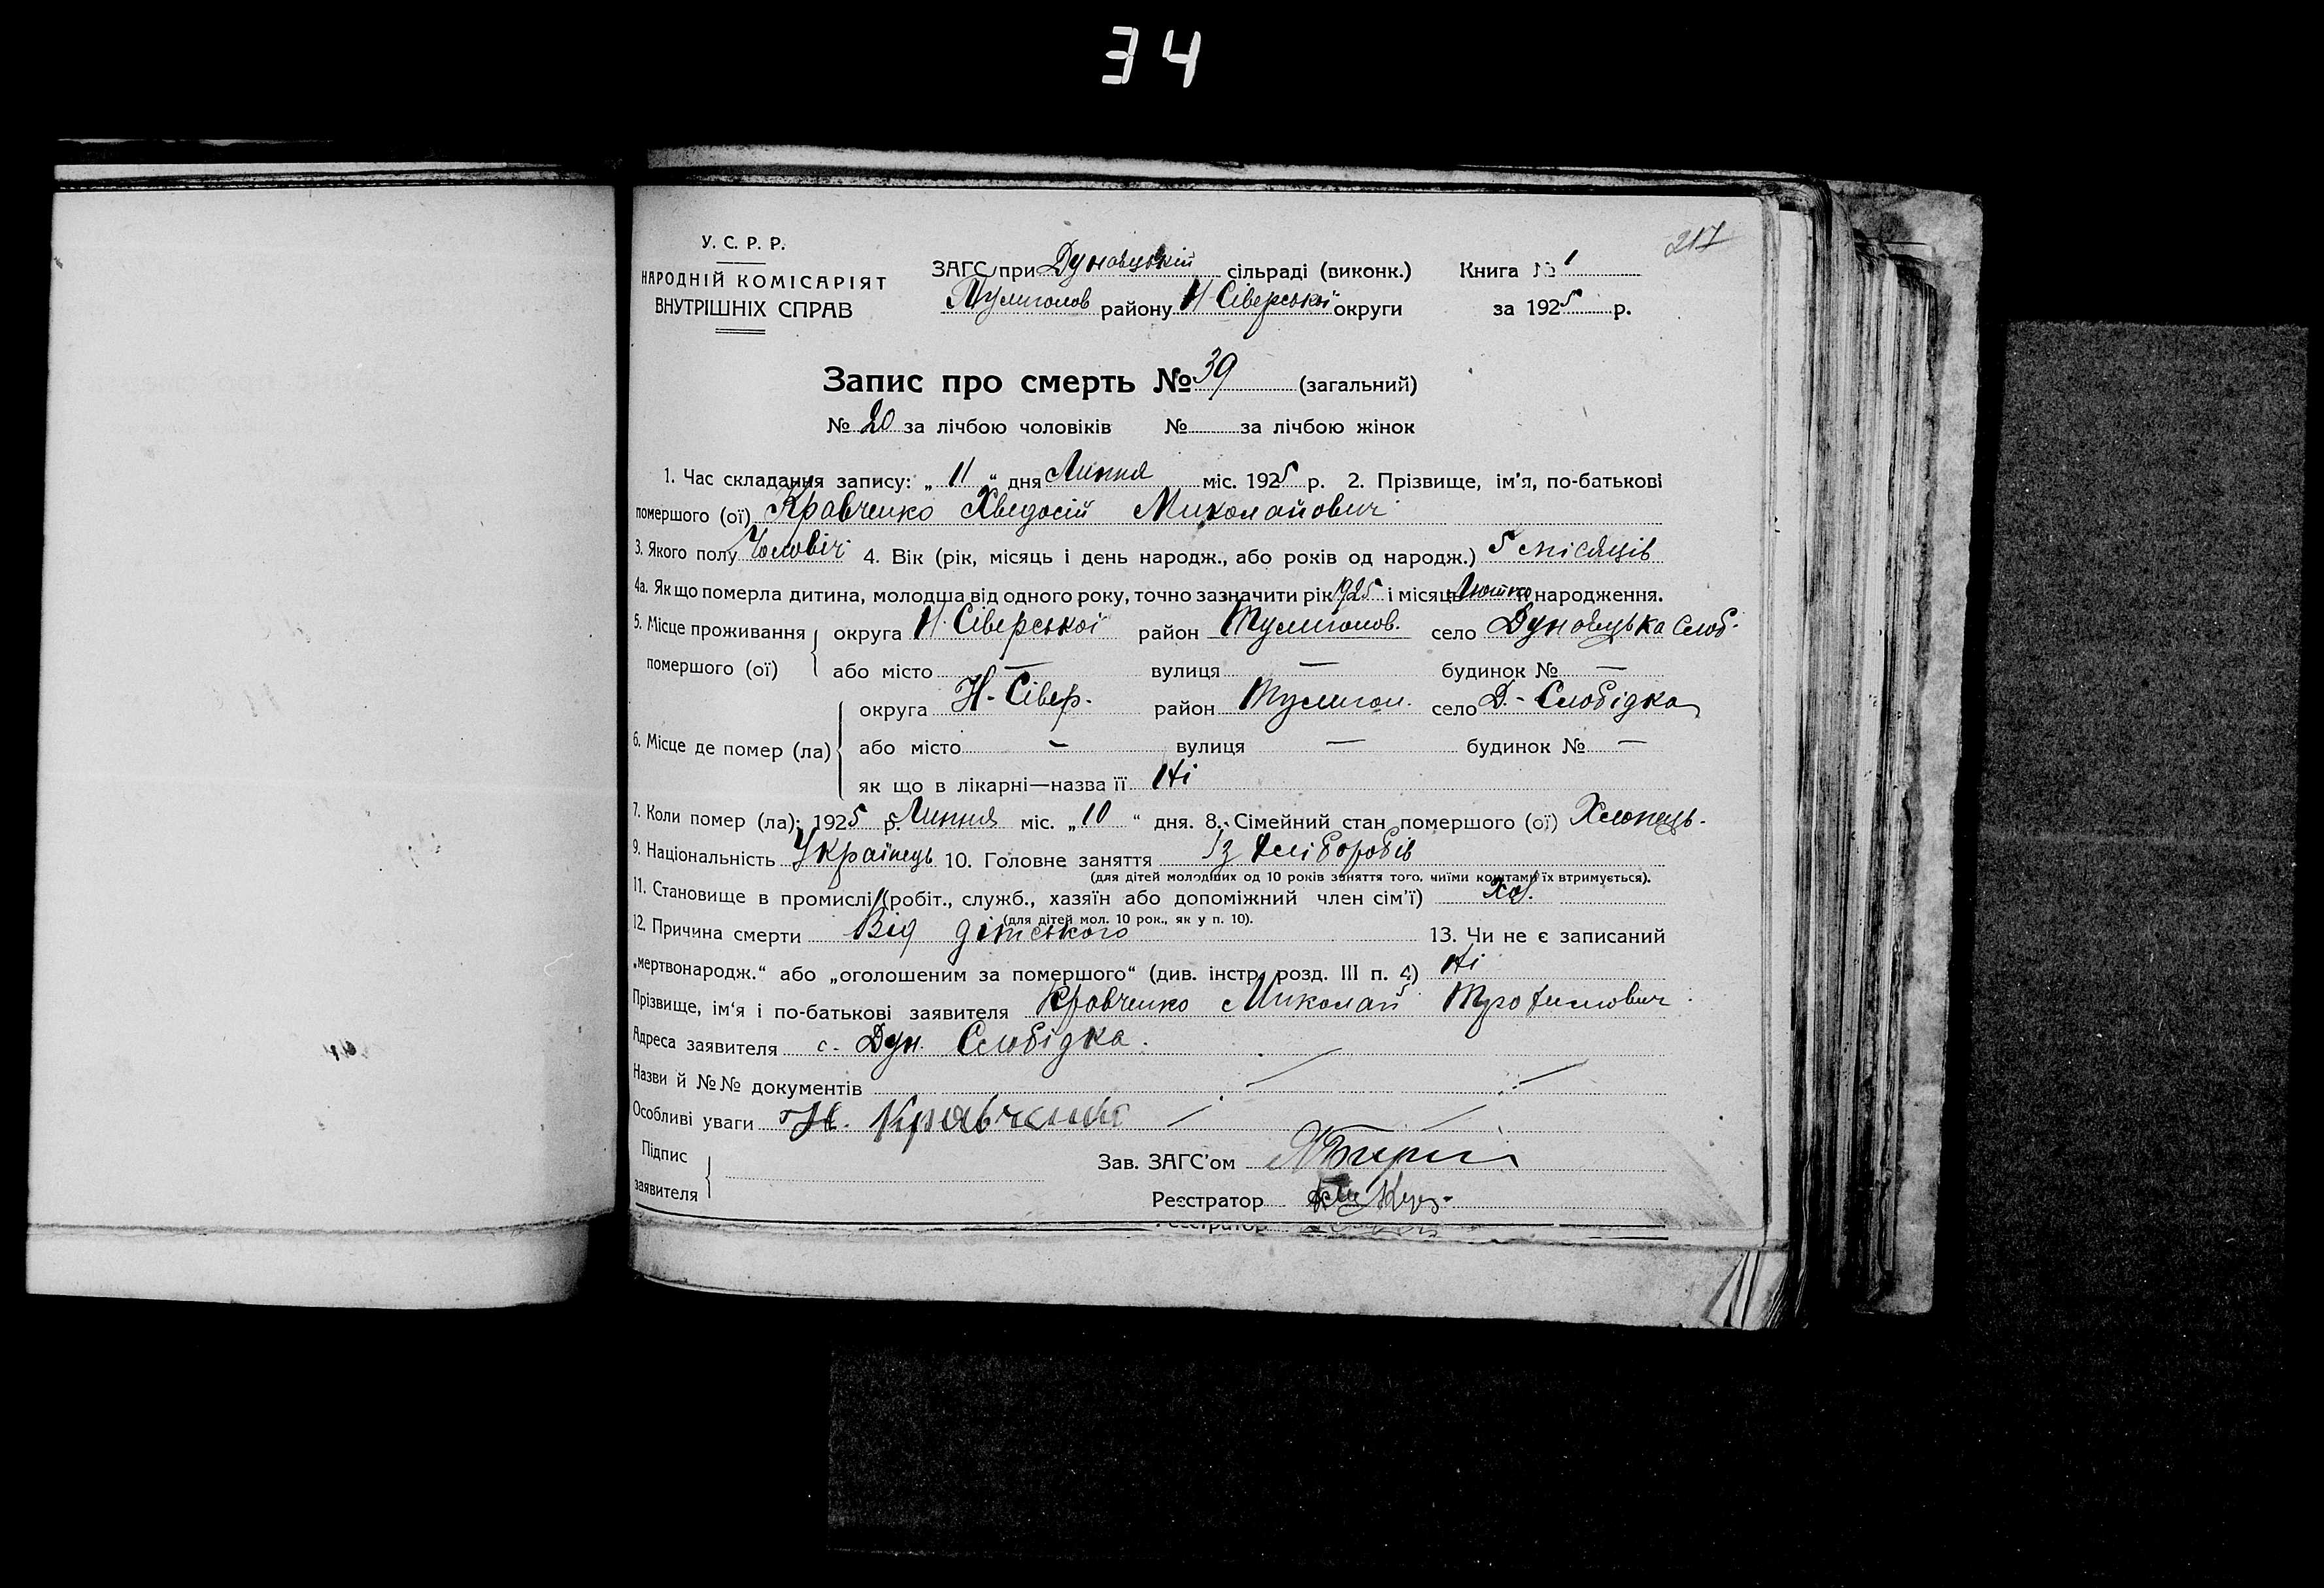 34
217
У. С. Р. Р.
НАРОДНІЙ КОМІСАРІЯТ
ВНУТРІШНІХ СПРАВ
ЗАГС при Дуновецькій сільраді (виконк.) Книга № 1
Тулиголов району Н Сіверської округи за 1925 р.
Запис про смерть № 39 (загальний)
№ 20 за лічбою чоловіків № за лічбою жінок
1. Час складання запису: „ 11 “ дня Липня міс. 1925 р. 2. Прізвище, ім’я, по-батькові
помершого (ої) Кравченко Хведосій Миколайович
3. Якого полу Чоловіч. 4. Вік (рік, місяць і день народж., або років од народж.) 5 місяців
4а. Як що померла дитина, молодша від одного року, точно зазначити рік 1925 і місяць Лютня народження.
5. Місце проживання округа Н. Сіверської район Тулиголов. село Дуновецька Слоб.
помершого (ої) або місто — вулиця — будинок № —
округа Н-Сівер. район Тулигол. село Д.-Слобідка
6. Місце де помер (ла) або місто - вулиця — будинок № —
як що в лікарні—назва її Ні
7. Коли помер (ла): 1925 р. Липня міс. „ 10 “ дня. 8. Сімейний стан помершого (ої) Хлопець.
9. Національність Українець 10. Головне заняття Із хліборобів
(для дітей молодших од 10 років заняття того, чиїми коштами їх втримується).
11. Становище в промислі (робіт., служб., хазяїн або допоміжний член сім’ї) Хаз.
(для дітей мол. 10 рок., як у п. 10).
12. Причина смерти Від дітського 13. Чи не є записаний
„мертвонародж.“ або „оголошеним за помершого“ (див. інстр. розд. III п. 4) Ні
Прізвище, ім‘я і по-батькові заявителя Кравченко Миколай Трохимович
Адреса заявителя с. Дун. Слобідка.
Назви й №№ документів
Особливі уваги Н. Кравченко
Підпис
заявителя
Зав. ЗАГС’ом
Реєстратор
Реєстратор